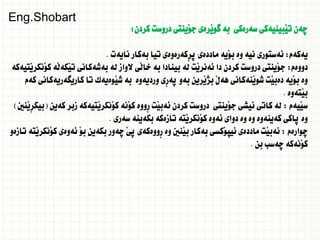 Eng.Shobart
چەن تێبینیەکی سەرەکی بە گوێرەی جۆینتی دروست کردن:
یەکەم: نەستوری نیە وە بۆیە ماددەی پڕکەرەوەی تیا بەکار نایەت .
دووەم: جۆینتی دروست کردن دا نەنرێت لە بینادا بە خاڵی لاواز لە بەشەکانی تێکەڵە کۆنکرێتیەکە
وە بۆیە دەبێت شوێنەکانی هەڵ بژێرین بەو پەڕی وردیەوە بە شێوەیەك تا کاریگەریەکانی کەم
بێتەوە .
سێیەم : لە کاتی نیشی جۆینتی دروست کردن نەبێت ڕووە کۆنە کۆنکرێتیەکە زبر کەین (بیکڕێنین)
وە پاکی کەینەوە وە وە دوای ئەوە کۆنکرێتە تازەکە بکەینە سەری .
چوارەم : نەبێت ماددەی ئیپۆکسی بەکار بێنین وە ڕووەکەی پێ چەور بکەین بۆ ئەوەی کۆنکرێتە تازەو
کۆنەکە چەسب بن .